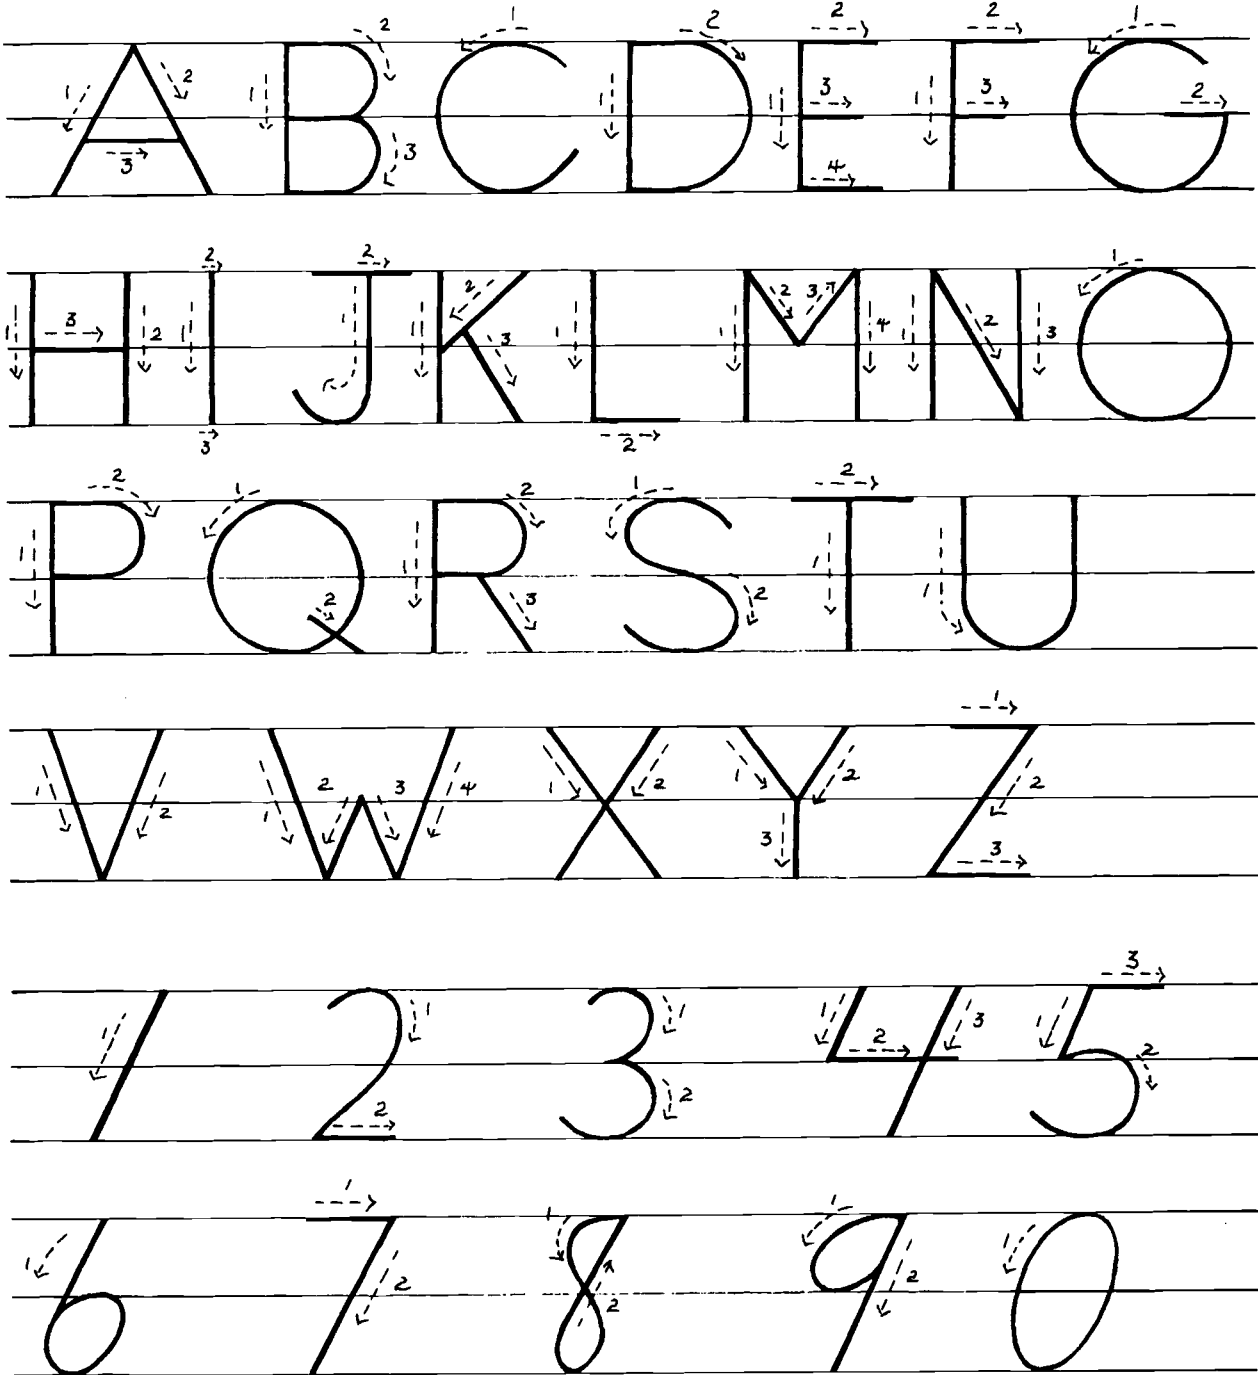 A B C D E F G
H I J K L M N O
P Q R S T U
V W X Y Z
1 2 3 4 5
6 7 8 9 0